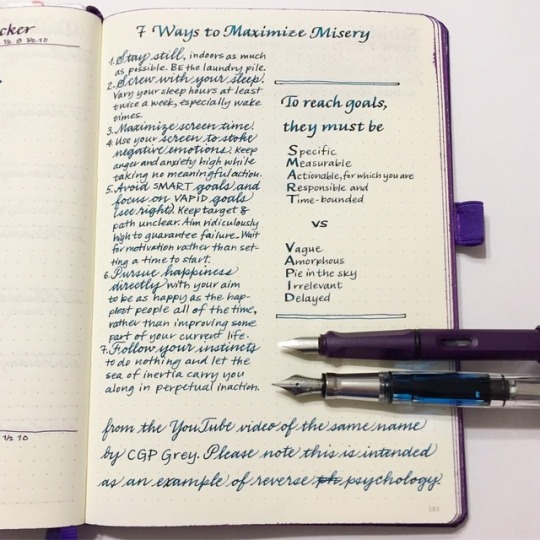 cker
7 Ways to Maximize Misery
1. Stay still, indoors as much
as possible. BE the laundry pile.
2. Screw with your sleep!
Vary your sleep hours at least
twice a week, especially wake
times.
3. Maximize screen time!
4. Use your screen to stoke
negative emotions! Keep
anger and anxiety high while
taking no meaningful action.
5. Avoid SMART goals and
focus on VAPID goals
(see right). Keep target &
path unclear. Aim ridiculously
high to guarantee failure. Wait
for motivation rather than set-
ting a time to start.
6. Pursue happiness
directly with your aim
to be as happy as the hap-
piest people all of the time,
rather than improving some
part of your current life.
7. Follow your instincts
to do nothing and let the
sea of inertia carry you
along in perpetual inaction.
To reach goals,
they must be
Specific
Measurable
Actionable, for which you are
Responsible and
Time-bounded
vs
Vague
Amorphous
Pie in the sky
Irrelevant
Delayed
from the YouTube video of the same name
by CGP Grey. Please note this is intended
as an example of reverse ph psychology.